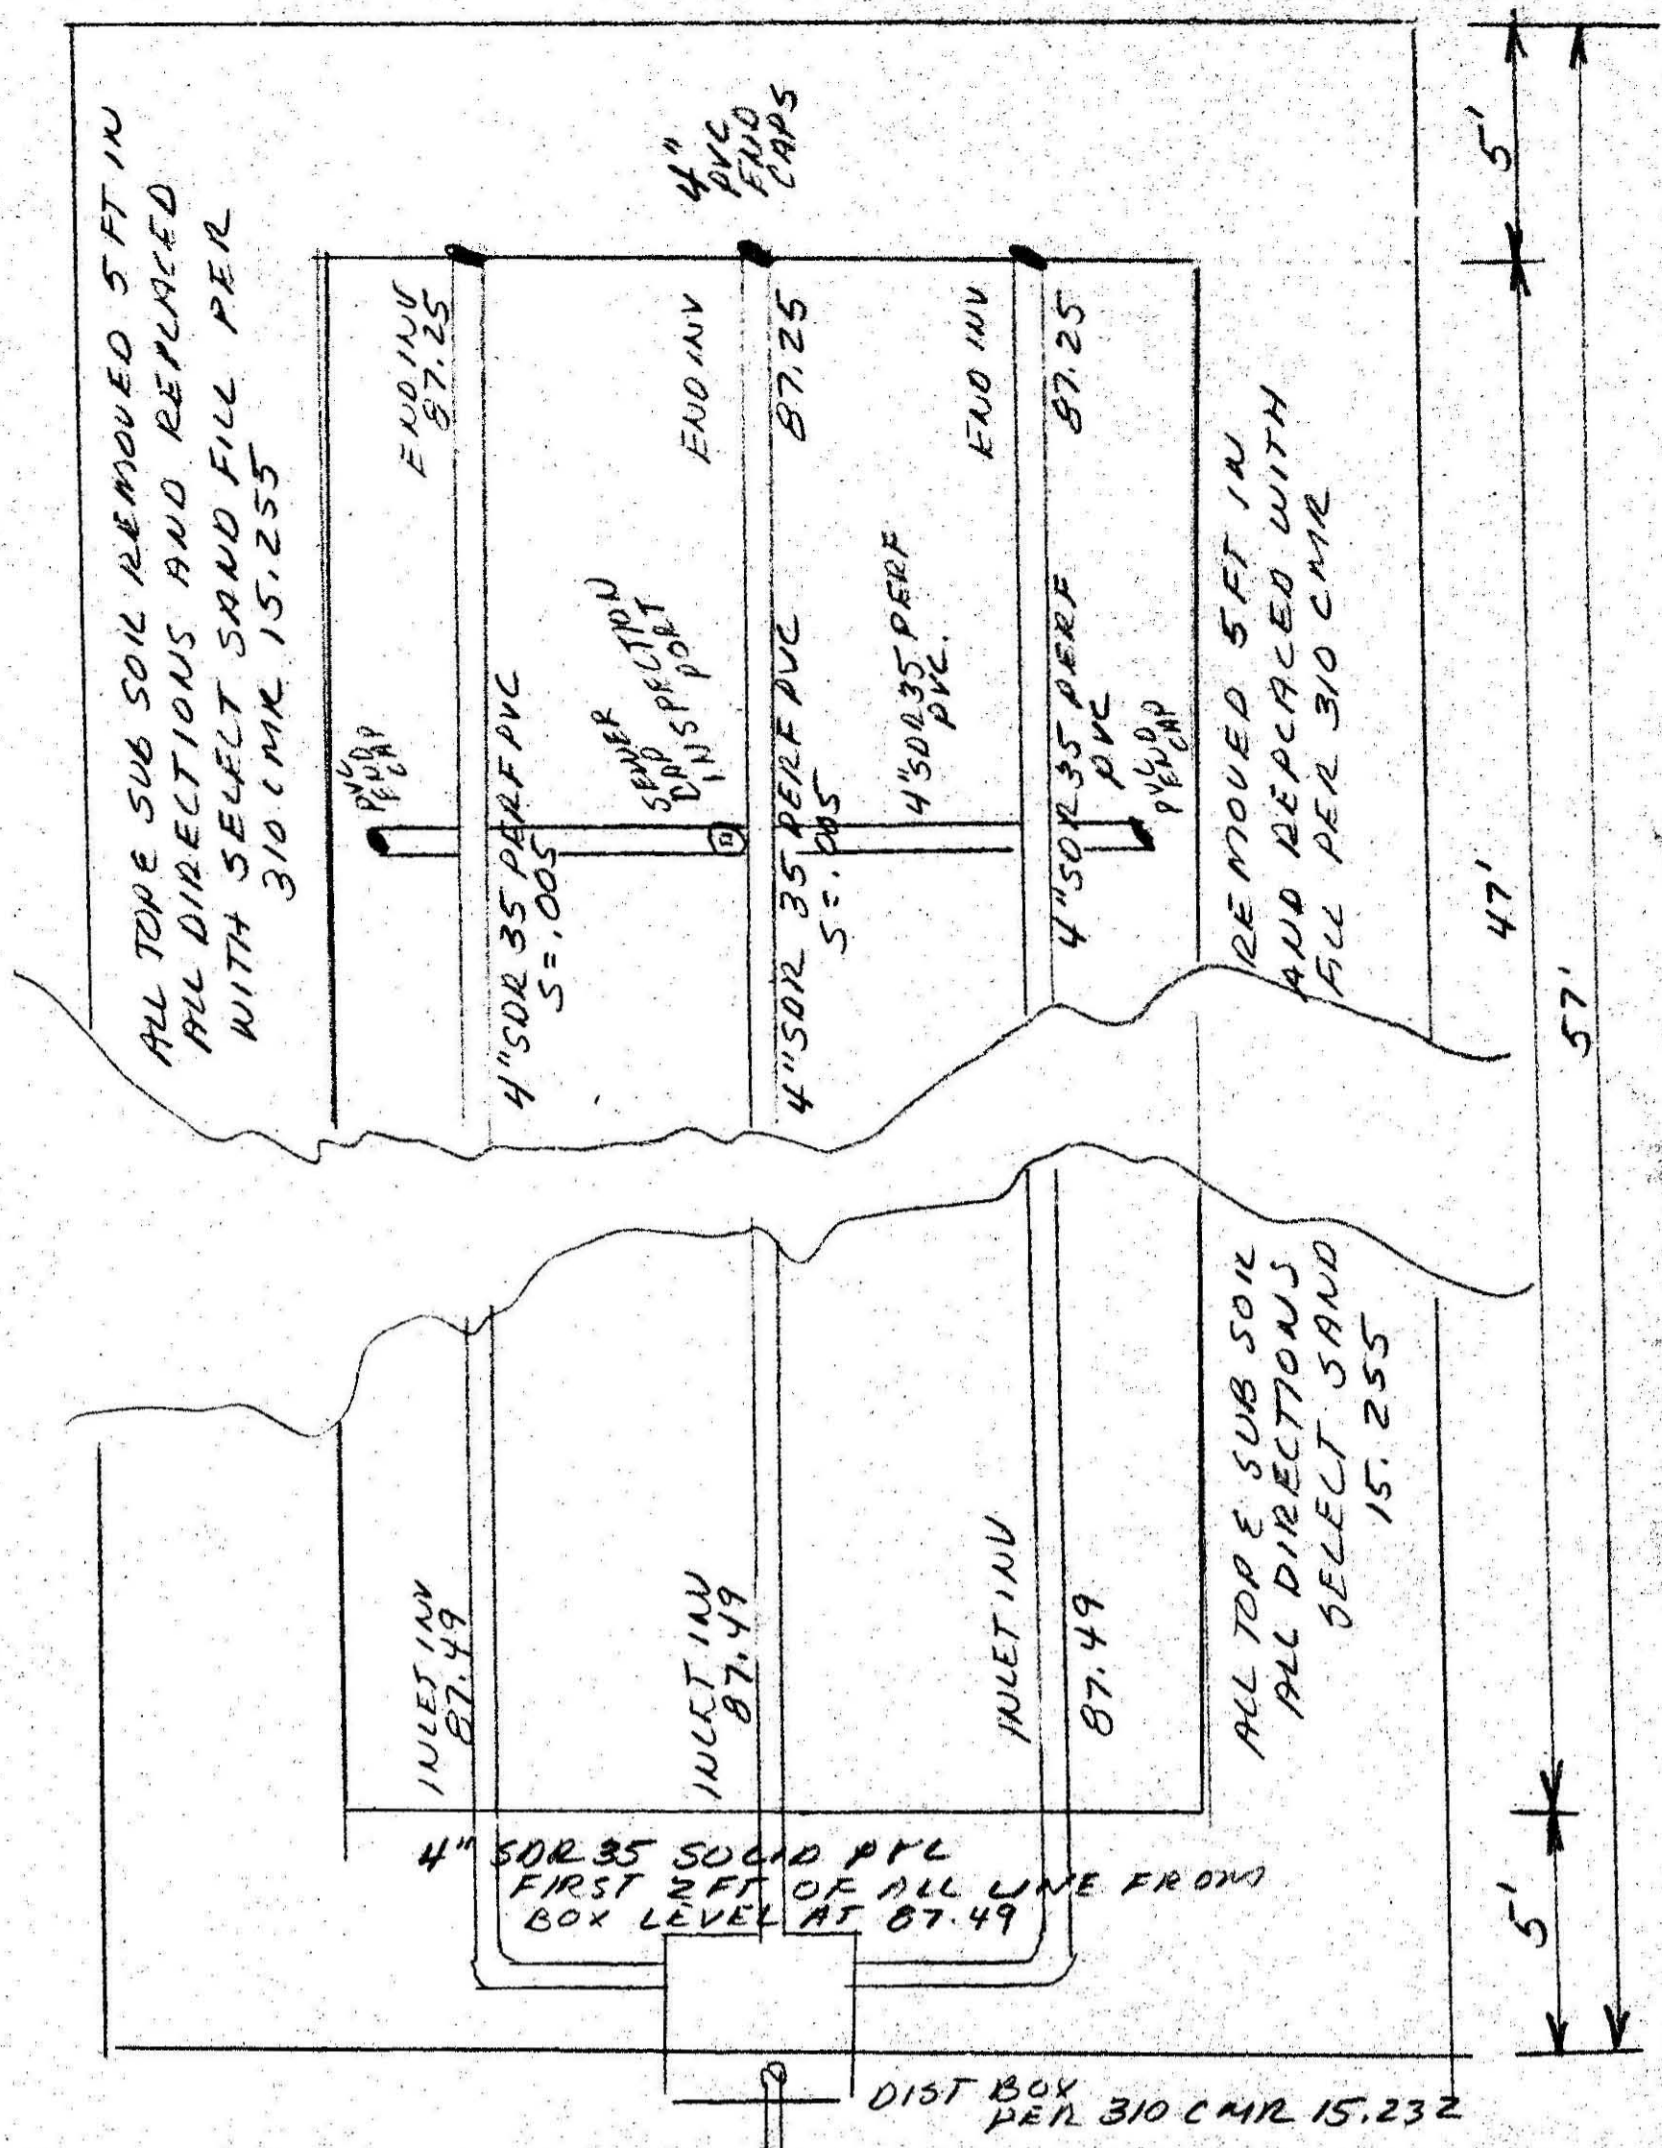 ALL TOP & SUB SOIL REMOVED 5 FT IN
ALL DIRECTIONS AND REPLACED
WITH SELECT SAND FILL PER
310 CMR 15.255
4"
PVC
END
CAPS
5'
END INV
87.25
END INV
87.25
END INV
87.25
PVC
END
CAP
4" SDR 35 PERF PVC
S=.005
INSPECTION
PORT
4" SDR 35 PERF PVC
S=.005
4" SDR 35 PERF
PVC.
4" SDR 35 PERF
PVC
PVC
END
CAP
REMOVED 5 FT IN
AND REPLACED WITH
FILL PER 310 CMR
47'
57'
INLET INV
87.49
INLET INV
87.49
INLET INV
87.49
ALL TOP & SUB SOIL
ALL DIRECTIONS
SELECT SAND
15.255
4" SDR 35 SOLID PVC
FIRST 2 FT OF ALL LINE FROM
BOX LEVEL AT 87.49
5'
DIST BOX
PER 310 CMR 15.232